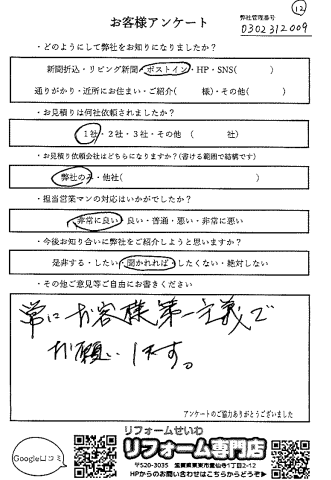 12
お客様アンケート
弊社管理番号
0302312009
・どのようにして弊社をお知りになりましたか?
新聞折込・リビング新聞・ポストイン・HP・SNS( )
通りがかり・近所にお住まい・ご紹介( 様)・その他( )
・お見積りは何社依頼されましたか?
1社・2社・3社・その他 ( 社)
・お見積り依頼会社はどちらになりますか?(書ける範囲で結構です)
弊社のみ・他社( )
・担当営業マンの対応はいかがでしたか?
非常に良い・良い・普通・悪い・非常に悪い
・今後お知り合いに弊社をご紹介しようと思いますか?
是非する・したい・聞かれれば・したくない・絶対しない
・その他ご意見等ご自由にお書きください
常にお客様第一主義で
お願いします。
アンケートのご協力ありがとうございました
リフォームせいわ
Google口コミ
リフォーム専門店
〒520-3035 滋賀県栗東市霊仙寺1丁目2-12
HPからのお問い合わせはこちらからどうぞ▶